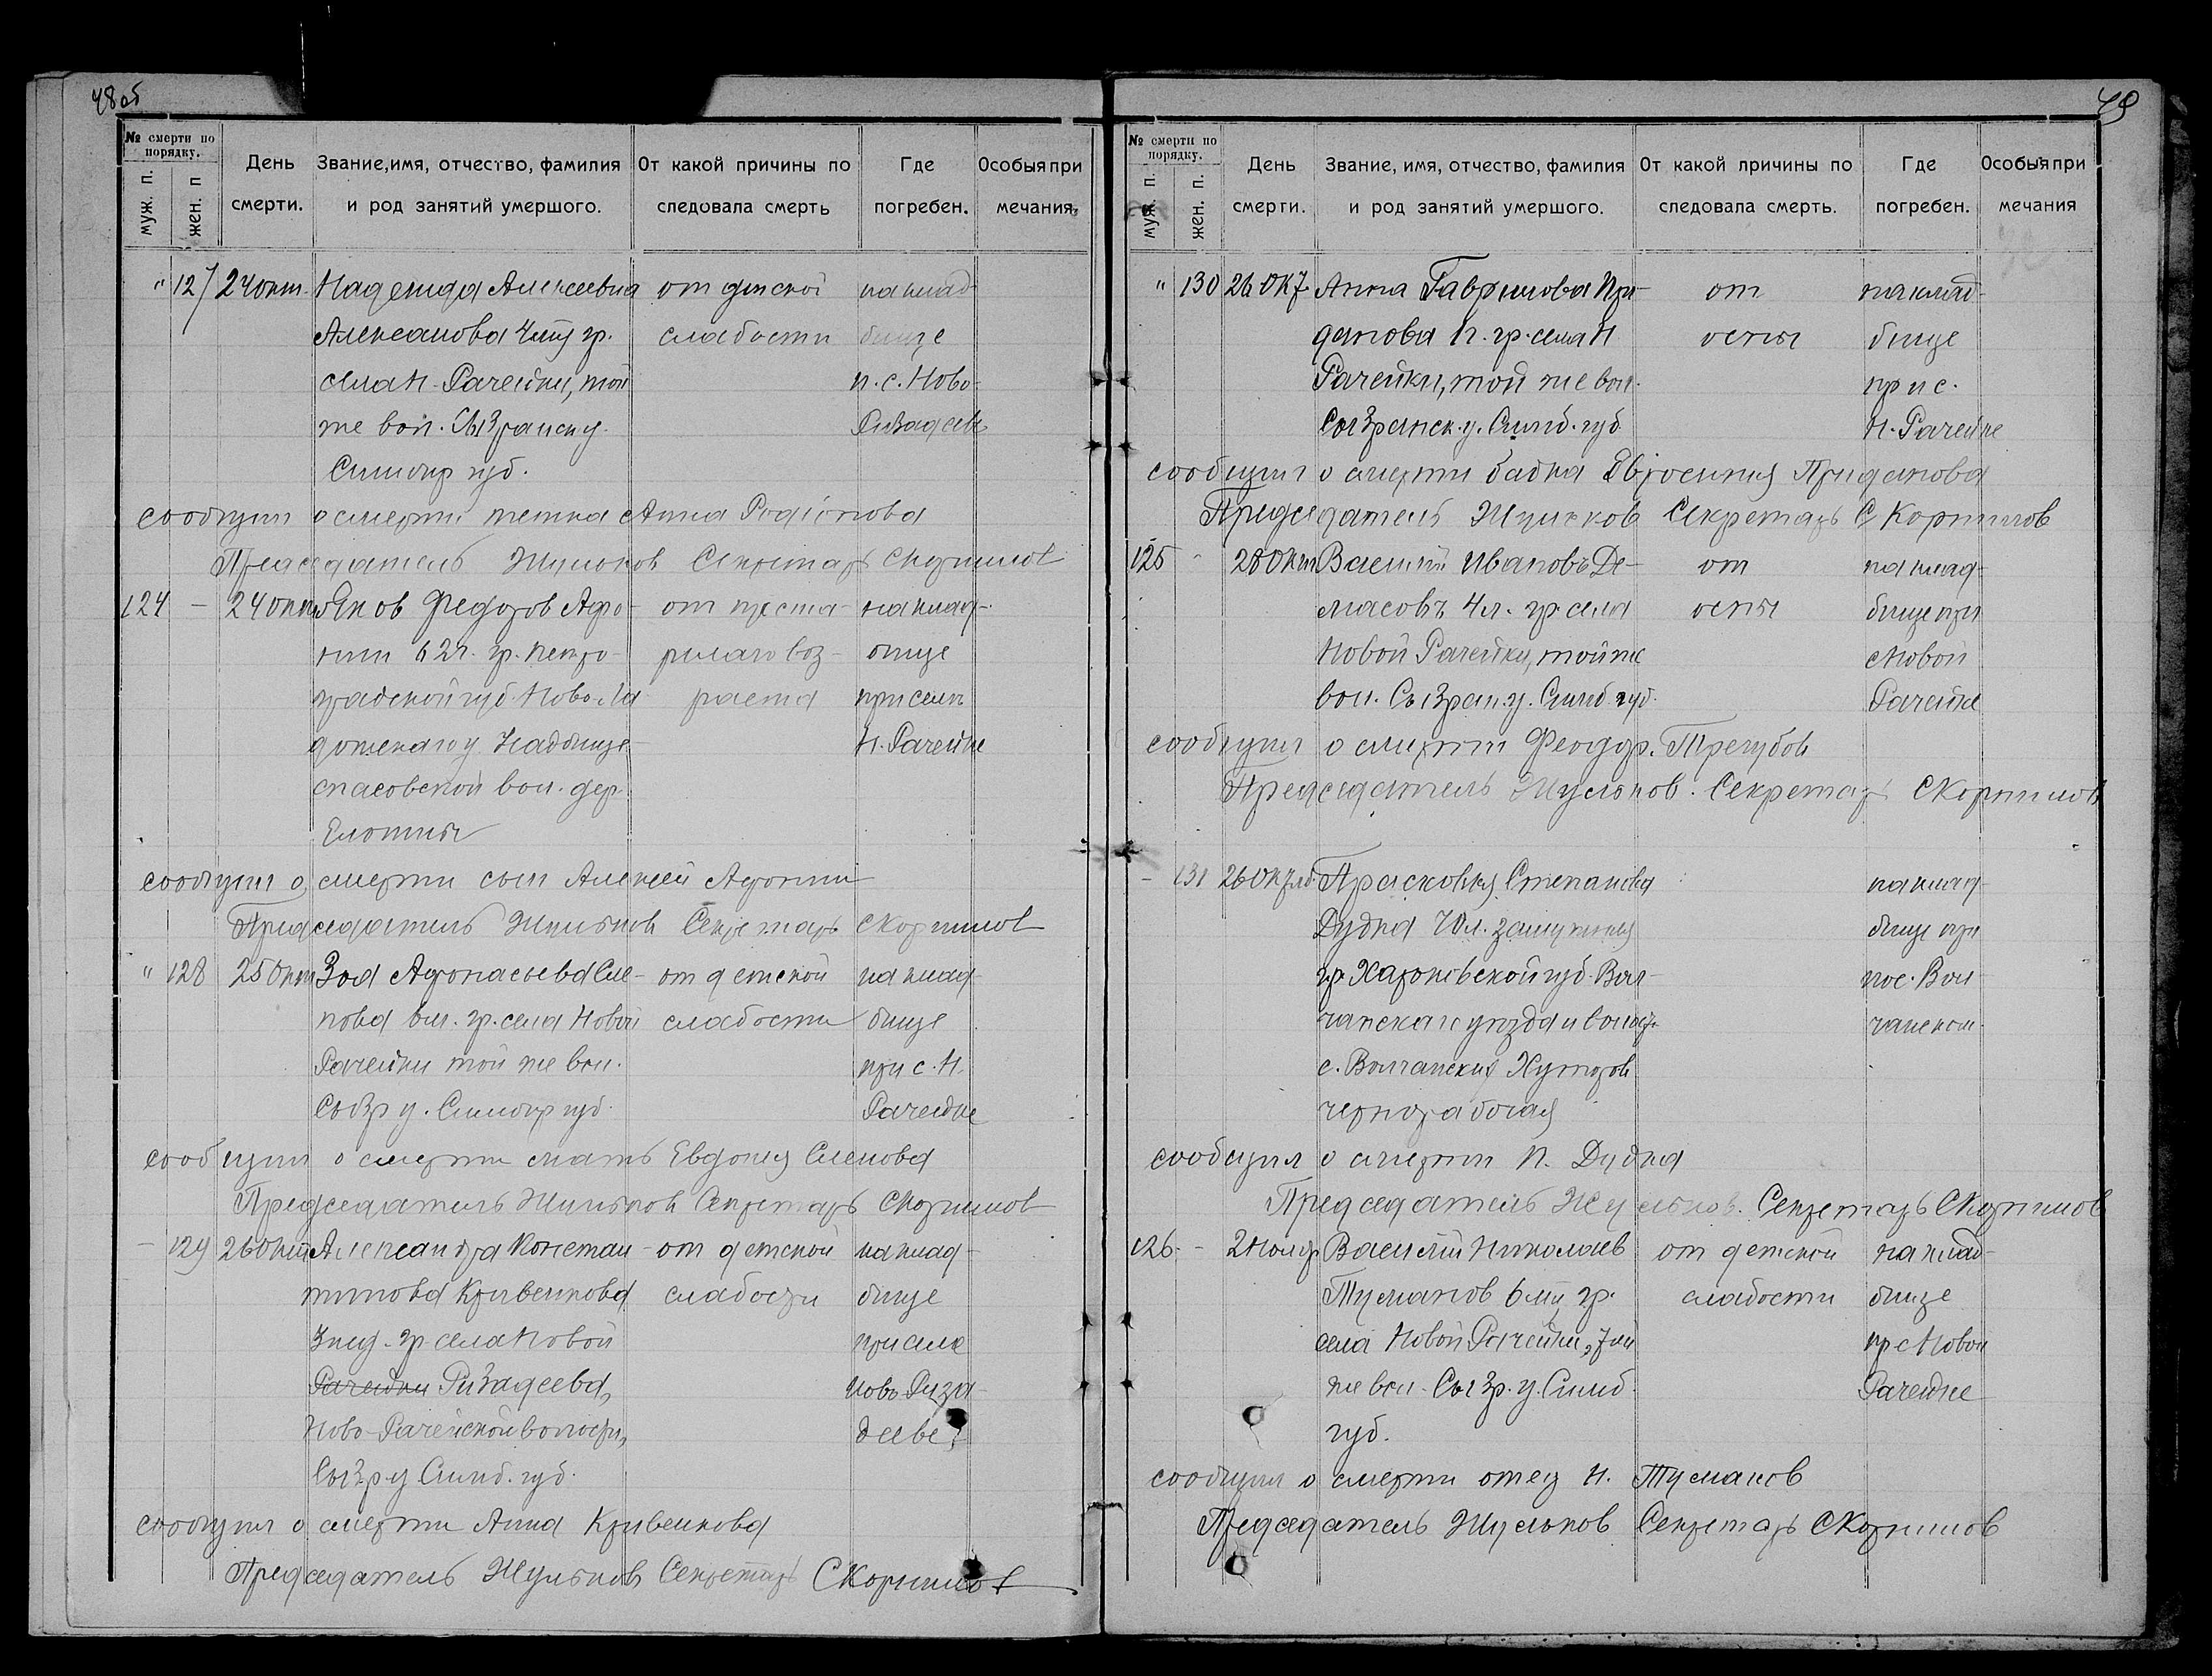 48об
№ смерти по порядку.
муж. п.
жен. п
День смерти.
Звание, имя, отчество, фамилия и род занятий умершого.
От какой причины последовала смерть
Где погребен.
Особыя примечания.
" 127 24 окт. Надежда Алексеевна от детской на клад-
слабости бище
села Н. Рачейки, той п. с. Ново-
же вол. Сызранск у. Ризадеев
Симбир губ.
сообщил о смерти тетка Анна Родионова
Председатель Жульков Секретарь СКорнилов
124 – 24 окт Яков Федоров Афо- от преста- на клад-
нин 62 л. гр. Петро- релаго воз- бище
градской губ. Ново-Ла- раста при селе
дожскаго у Н. Рачейке
спасовской вол. дер.
сообщил о смерти сын Алексей Афонин
Председатель Жульков Секретарь СКорнилов
" 128 25 Окт Зоя Афонасьева Сле- от детской на клад-
пова гр. села Новой слабости бище
Рачейки той же вол. при с. Н.
Сызр у. Симбир губ. Рачейке
сообщил о смерти мать Евдокия
Председатель Жульков Секретарь СКорнилов
– 129 26 Окт Александра Констан- от детской на клад-
тинова Кривенкова слабости бище
3 нед. гр села Новой при селе
Рачейки Ризадеева, Ново Риза-
Ново-Рачейской волости, дееве
Сызр у Симб. губ.
сообщил о смерти Анна Кривенкова
Председатель Жульков Секретарь СКорнилов
49
№ смерти по порядку.
муж. п.
жен. п.
День смерти.
Звание, имя, отчество, фамилия и род занятий умершого.
От какой причины последовала смерть.
Где погребен.
Особыя примечания
" 130 26 Окт Анна Гаврилова При- от на клад-
данова гр. села Н оспы бище
Рачейки, той же вол. при с.
Сызранск. у. Симб. губ Н. Рачейке
сообщил о смерти бабка Евросиния Приданова
Председатель Жульков Секретарь СКорнилов
125 " 28 Окт Василий Ивановъ Де- от на клад-
масовъ 4 л. гр. села оспы бище при
Новой Рачейки, той же с Новой
вол. Сызран. у. Симб. губ. Рачейке
сообщил о смерти Феодор. Трегубов
Председатель Жульков. Секретарь СКорнилов
– 131 26 Октяб. Прасковья Степанова на клад-
Дудка 70 л. бище при
гр. Харьковской губ. Вол- пос. Вол-
чанскаго уезда и волости чанском.
с. Волчанских Хуторов
чернорабочая
сообщил о смерти П. Дудка
Председатель Жульков. Секретарь СКорнилов
126. – 2 Нояб Василий Николаев от детской на клад-
Туманов гр. слабости бище
села Новой Рачейки, той пр с Новой
же вол. Сызр. у. Симб. Рачейке
губ.
сообщил о смерти отец Н. Туманов
Председатель Жульков Секретарь СКорнилов